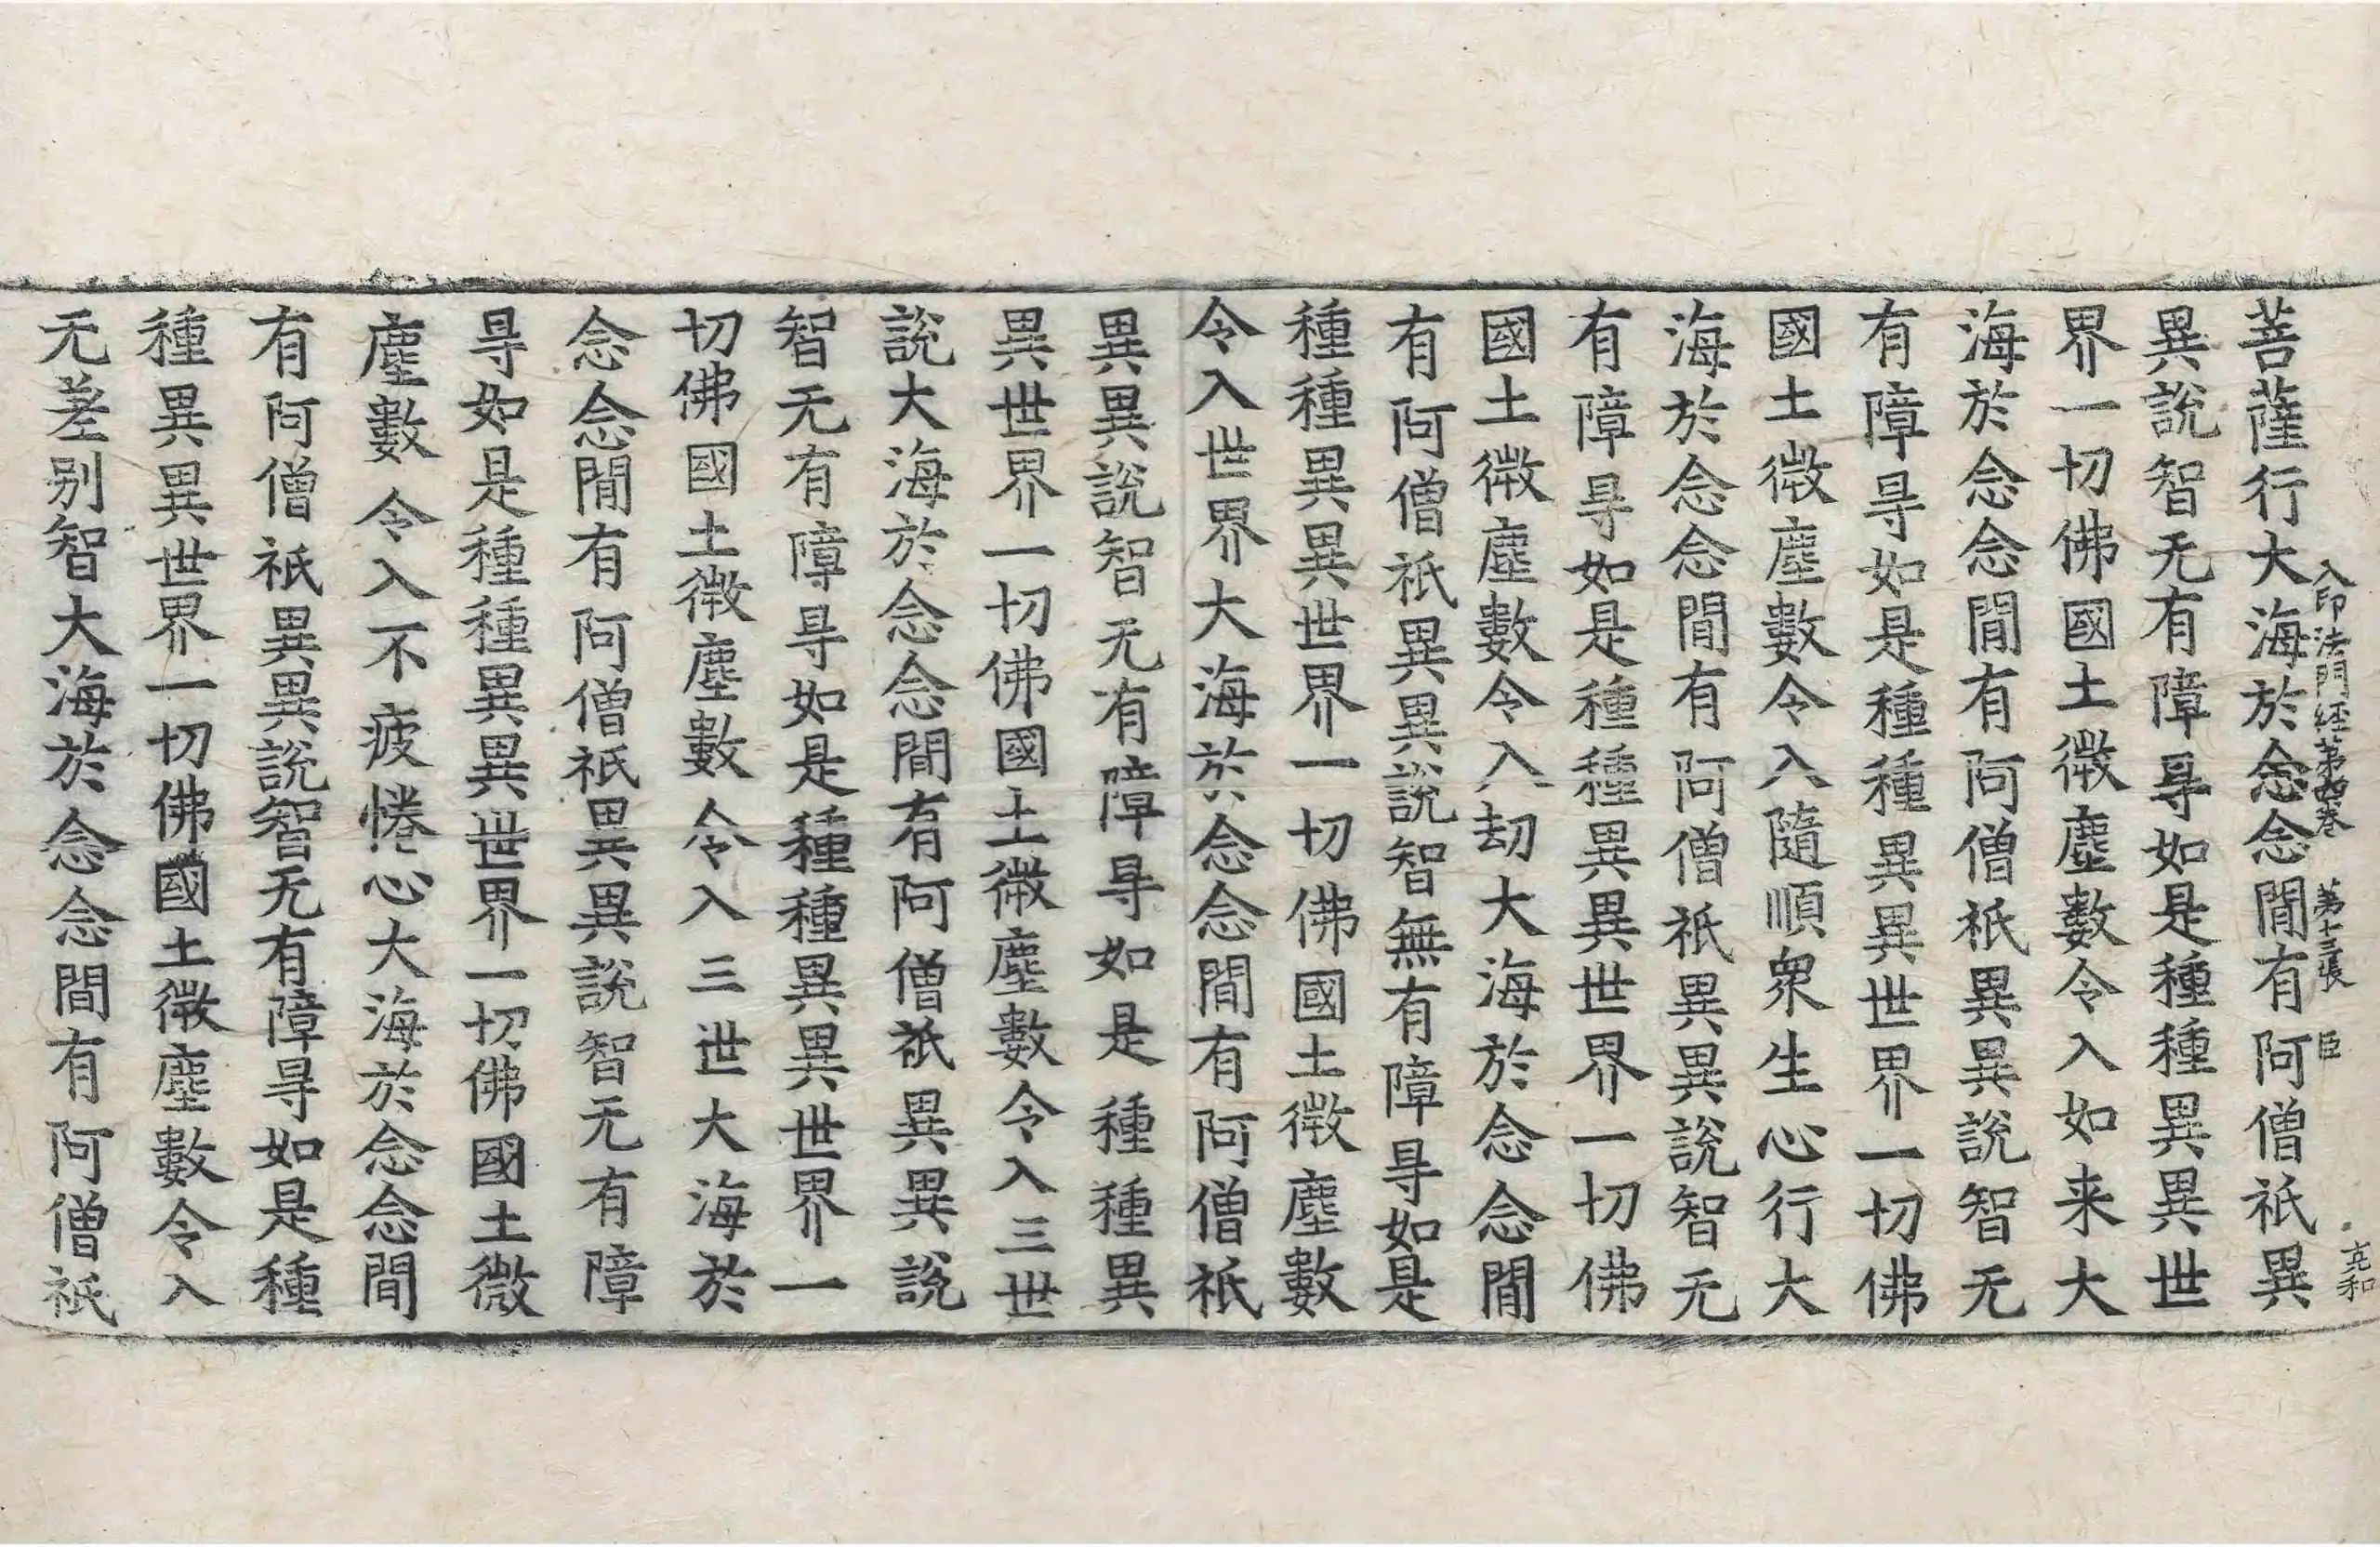 入印法門経第四卷 第十三張 臣
克和
菩薩行大海於念念間有阿僧祇異
異說智无有障㝵如是種種異異世
界一切佛國土微塵數令入如来大
海於念念間有阿僧祇異異說智无
有障㝵如是種種異異世界一切佛
國土微塵數令入隨順衆生心行大
海於念念間有阿僧祇異異說智无
有障㝵如是種種異異世界一切佛
國土微塵數令入劫大海於念念間
有阿僧祇異異說智無有障㝵如是
種種異異世界一切佛國土微塵數
令入世界大海於念念間有阿僧祇
異異說智无有障㝵如是種種異
異世界一切佛國土微塵數令入三世
說大海於念念間有阿僧祇異異說
智无有障㝵如是種種異異世界一
切佛國土微塵數令入三世大海於
念念間有阿僧祇異異說智无有障
㝵如是種種異異世界一切佛國土微
塵數令入不疲惓心大海於念念間
有阿僧祇異異說智无有障㝵如是種
種異異世界一切佛國土微塵數令入
无差别智大海於念念間有阿僧祇